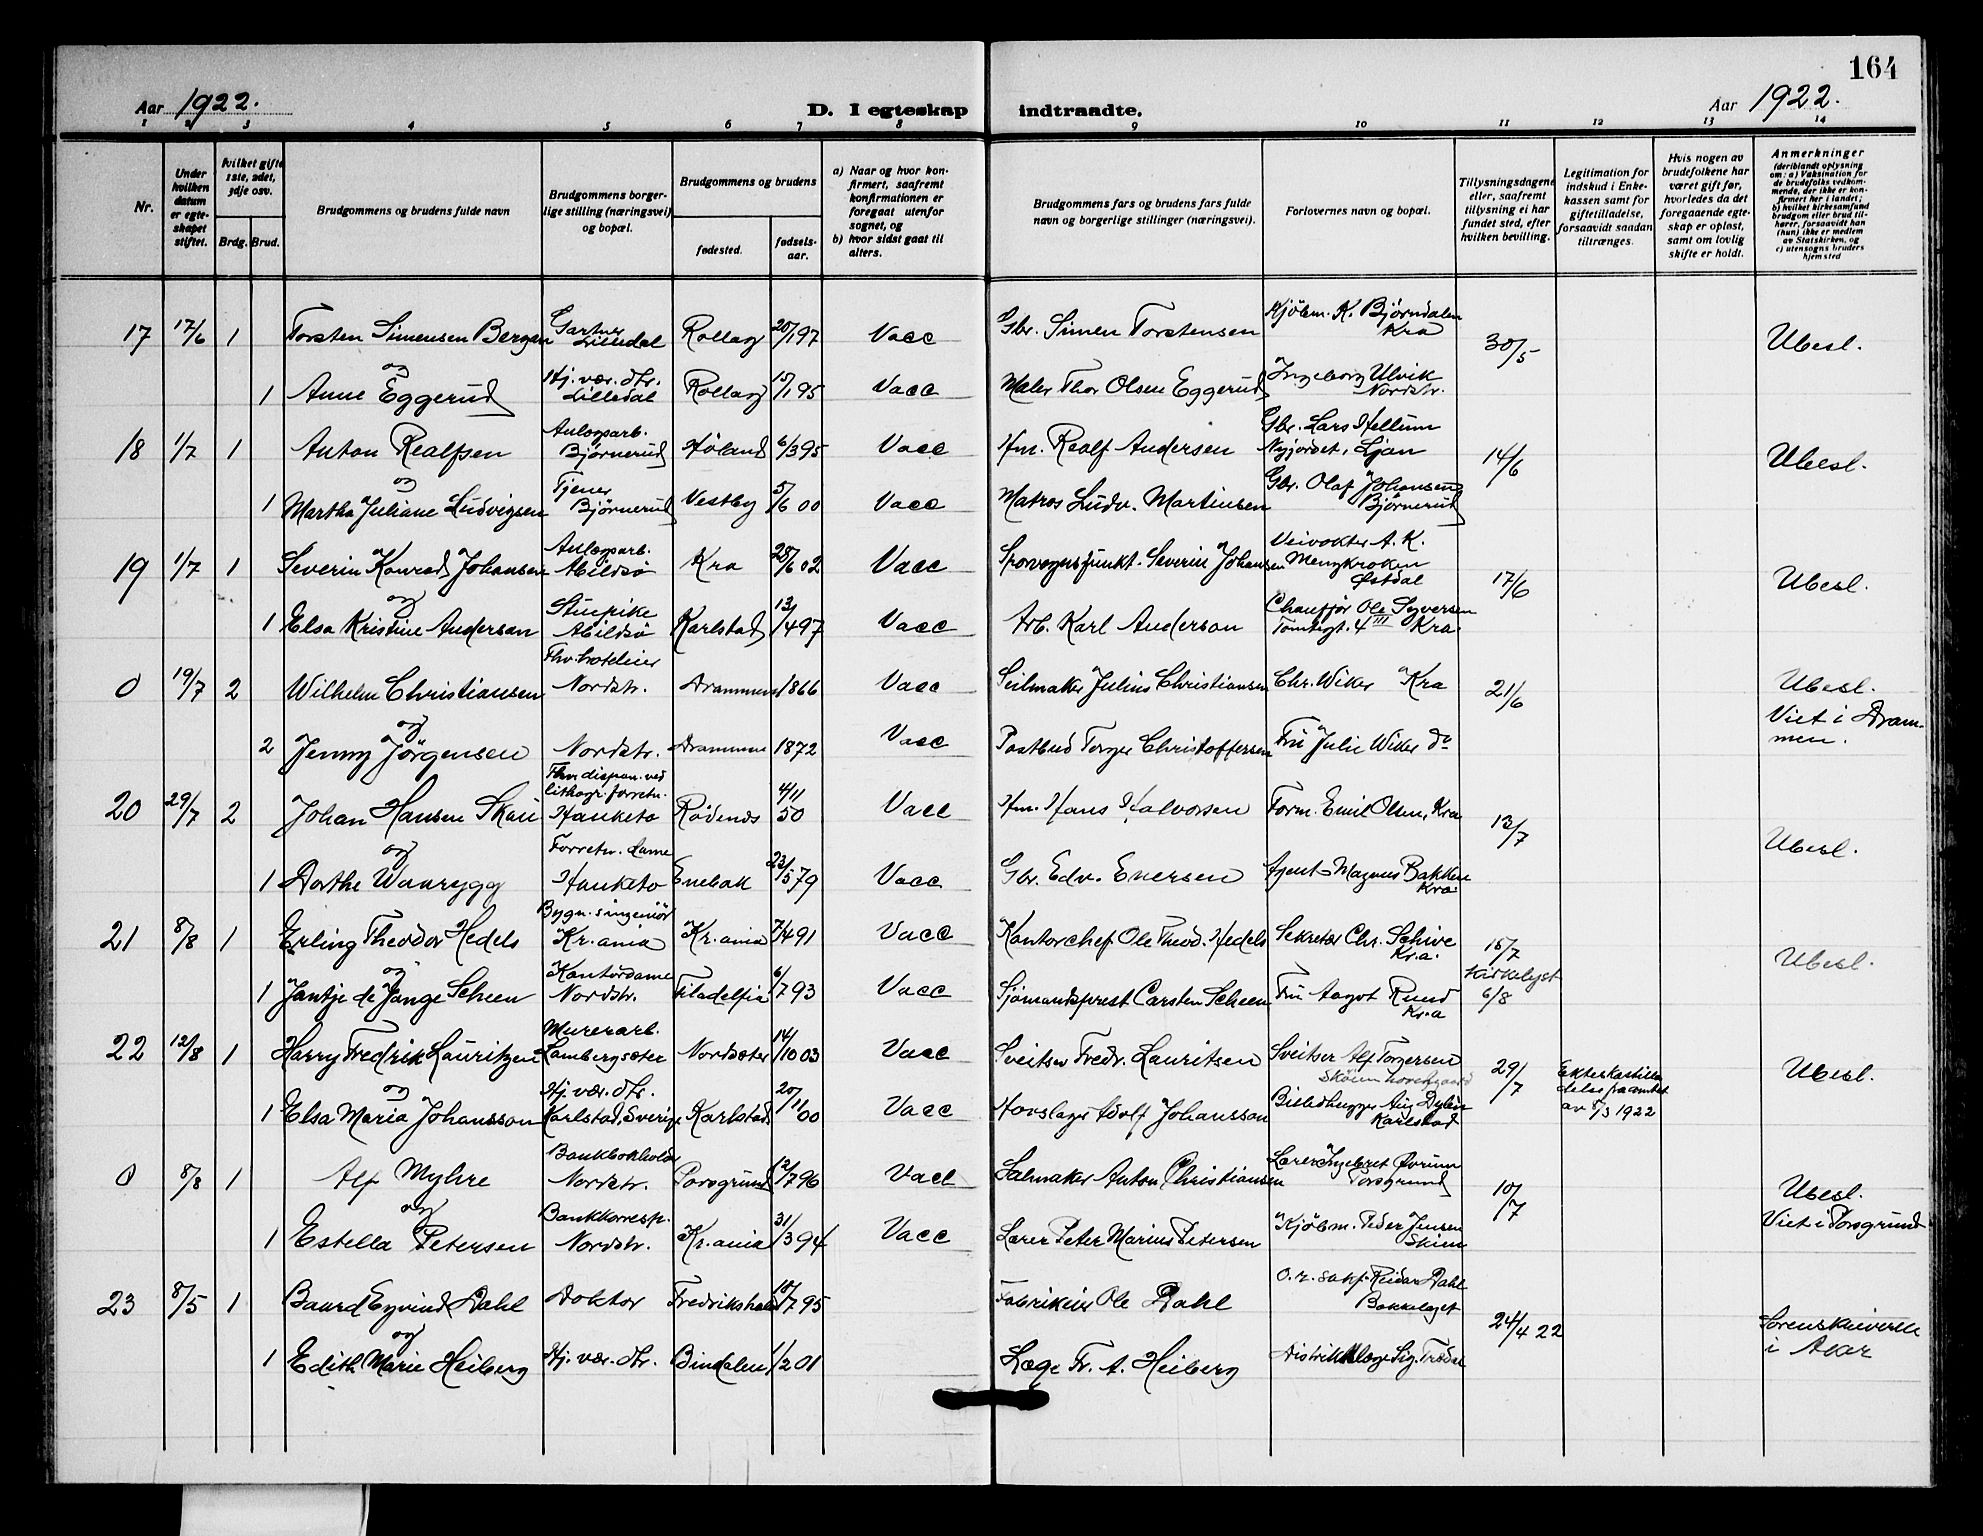 164
Aar 1922.
D. I egteskap indtraadte.
Aar 1922.
1 2 3 4 5 6 7 8 9 10 11 12 13 14
Nr.
Under hvilken datum er egteskapet stiftet.
Hvilket gifte 1ste, 2det, 3dje osv.
Brdg. Brud.
Brudgommens og brudens fulde navn
Brudgommens borgerlige stilling (næringsvei) og bopæl.
Brudgommens og brudens
fødested.
fødselsaar.
a) Naar og hvor konfirmert, saafremt konfirmationen er foregaat utenfor sognet, og
b) hvor sidst gaat til alters.
Brudgommens fars og brudens fars fulde navn og borgerlige stillinger (næringsvei).
Forlovernes navn og bopæl.
Tillysningsdagene eller, saafremt tillysning ei har fundet sted, efter hvilken bevilling.
Legitimation for indskud i Enkekassen samt for giftetilladelse, forsaavidt saadan tiltrænges.
Hvis nogen av brudefolkene har været gift før, hvorledes da det foregaaende egteskap er opløst, samt om lovlig skifte er holdt.
Anmerkninger
(deriblandt oplysning om: a) Vaksination for de brudefolks vedkommende, der ikke er konfirmert her i landet;
b) hvilket kirkesamfund brudgom eller brud tilhører, forsaavidt han (hun) ikke er medlem av Statskirken, og
c) utensogns bruders hjemsted
17 17/6 1 Torsten Simensen Bergan Gartner Lilledal Rollag 20/1 97 Vacc Gbr. Simen Torstensen Kjöbm. K. Björndalen Kra 30/5 Ubesl.
og
1 Anne Eggerud Hj. vær. dtr. Lilledal Rollag 15/1 95 Vacc Maler Thor Olsen Eggerud Ingeborg Ulvik Nordstr.
18 1/7 1 Anton Realfsen Anlegsarb. Bjørnerud Høland 6/3 95 Vacc Hm. Realf Andersen Gbr. Lars Hellum Nyjordet, Ljan 14/6 Ubesl.
og
1 Martha Juliane Ludvigsen Tjener Bjørnerud Vestby 5/6 00 Vacc Matros Ludv. Martinsen Gbr. Olaf Johansen Bjørnerud
19 1/7 1 Severin Konrad Johansen Anlægsarb. Abildsö Kra 28/6 02 Vacc Sporvognsfunkt. Severin Johansen Veivokter A. K. Mengkroken Østdal 17/6 Ubesl.
og
1 Elsa Kristine Anderson Stuepike Abildsö Karlstad 13/4 97 Vacc Arb. Karl Anderson Chauffør Ole Syversen Tomtegt. 4 III Kra.
0 19/7 2 Wilhelm Christiansen Fhv. hoteleier Nordstr. Drammen 1866 Vacc Seilmaker Julius Christiansen Chr. Wiker Kra 21/6 Ubesl.
Viet i Drammen.
og
2 Jenny Jörgensen Nordstr. Drammen 1872 Vacc Postbud Torger Christoffersen Frú Julie Wiker do
20 29/7 2 Johan Hansen Skau Fhv dispon. ved lithogr. forretn. Hauketo Rødenes 4/11 50 Vacc Hm. Hans Halvorsen Form. Emil Olsen, Kra 13/7 Ubesl.
og
1 Dorthe Waarygg Forretn. dame Hauketo Enebak 23/5 79 Vacc Gbr. Edv. Enersen Agent Magnus Bakken Kra.
21 8/8 1 Erling Theodor Hedels Bygn.singeniör Kr.ania Kr.ania 7/4 91 Vacc Kontorchef Ole Theod. Hedels Sekretær Chr. Schive Kr.a. 15/7 Kirkelyst 6/8 Ubesl.
og
1 Jantje de Jonge Scheen Kontordame Nordstr. Filadelfia 6/7 93 Vacc Sjömandsprest Carsten Scheen Frú Aagot Ruud Kr.a
22 12/8 1 Harry Fredrik Lauritzen Murerarb. Lambergsæter Nordsæter 14/10 03 Vacc Sveitser Fredr. Lauritsen Sveitser Alf Torgersen 29/7 Ubesl.
og
1 Elsa Maria Johansson Hj. vær. dtr. Karlstad, Sverige Karlstad 20/11 00 Vacc Hovslager Adolf Johansson Billedhugger Aug Dylén Karlstad
av 8/3 1922
0 8/8 1 Alf Myhre Bankbokholder Nordstr. Porsgrund 12/7 96 Vacc Salmaker Anton Christiansen Lærer Ingebret Porsgrund 10/7 Ubesl.
Viet i Porsgrund
og
1 Estella Petersen Bankkorresp. Nordstr. Kr.ania 31/3 94 Vacc Lærer Peter Marius Petersen Kjöbm. Peder Jensen Skien
23 8/5 1 Baard Eyvind Dahl Doktor Fredrikshald 18/7 95 Fabrikeier Ole Dahl O.r. sakf. Reidar Dahl Bækkelaget 24/4 22 Sorenskriveren i Aker
og
1 Edith Marie Heiberg Hj. vær. dtr. Bindalen 1/2 01 Læge Fr. A. Heiberg Distriktslæge Sig.